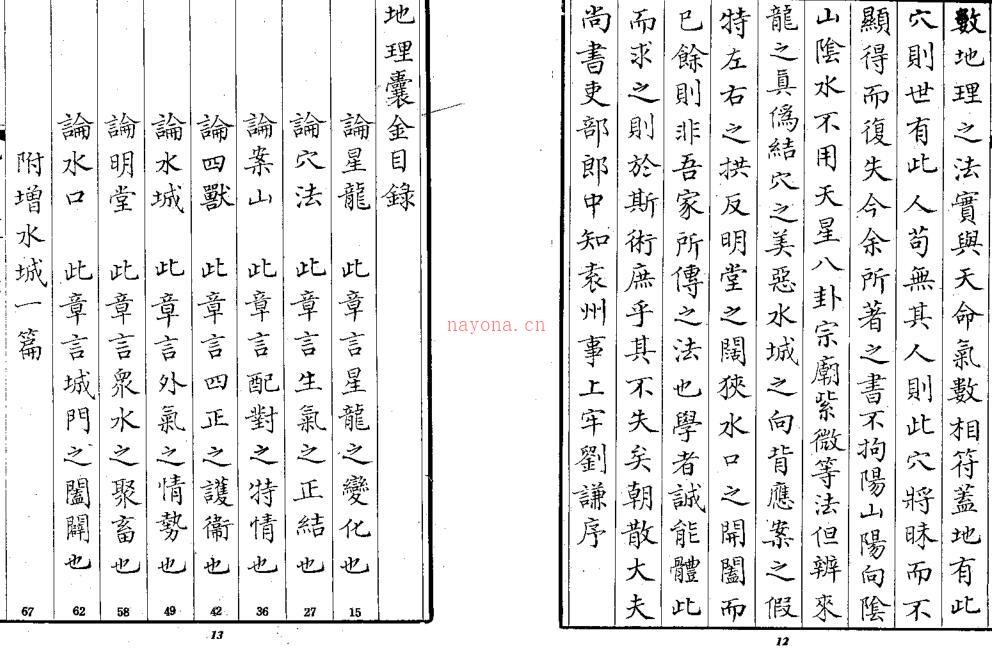 數地理之法實與天命氣數相符蓋地有此
穴則世有此人苟無其人則此穴將昧而不
顯得而復失今余所著之書不拘陽山陽向陰
山陰水不用天星八卦宗廟紫微等法但辨來
龍之真僞結穴之美惡水城之向背應案之假
特左右之拱反明堂之闊狹水口之開闔而
已餘則非吾家所傳之法也學者誠能體此
而求之則於斯術庶乎其不失矣朝散大夫
尚書吏部郎中知袁州事上牢劉謙序
12
地理囊金目錄
論星龍 此章言星龍之變化也 15
論穴法 此章言生氣之正結也 27
論案山 此章言配對之特情也 36
論四獸 此章言四正之護衞也 42
論水城 此章言外氣之情勢也 49
論明堂 此章言衆水之聚畜也 58
論水口 此章言城門之闔闢也 62
附增水城一篇 67
13
nayona.cn